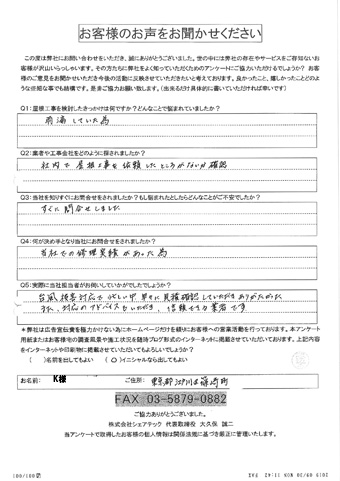 お客様のお声をお聞かせください
この度は弊社にお問い合わせをいただき、誠にありがとうございました。世の中には弊社の存在やサービスをご存知ないお
客様が沢山いらっしゃいます。その方たちに弊社をよく知っていただくためのアンケートにご協力いただけるでしょうか? お客
様のご意見をお聞かせいただき今後の活動に反映させていただきたいと考えております。良かったこと、嬉しかったことどのよ
うな些細な事でも結構です。是非ご協力お願い致します。(出来るだけ具体的に書いていただければ幸いです)
Q1:屋根工事を検討したきっかけは何ですか?どんなことで悩まれていましたか?
雨漏していた為
Q2:業者や工事会社をどのように探されましたか?
社内で屋根工事を依頼したところがないか確認
Q3:当社を知りすぐにお問合せをされましたか?もし悩まれたとしたらどんなことがご不安でしたか?
すぐに問合せしました
Q4:何が決め手となり当社にお問合せをされましたか?
当社での修理実績があった為
Q5:実際に当社担当者がお伺いしていかがでしたでしょうか?
台風被害対応でお忙しい中早々に見積確認していただきありがたかった
また、対応のアドバイスもいただき、信頼できる業者です
*弊社は広告宣伝費を極力かけない為にホームページだけを頼りにお客様への営業活動を行っております。本アンケート
用紙またはお客様宅の調査風景や施工状況を随時ブログ形式のインターネットに掲載させていただいております。上記内容
をインターネットや印刷物に掲載させていただいてもよろしいでしょうか?
( )名前を出してもよい (○)イニシャルなら出してもよい
お名前: K様 ご住所: 東京都江戸川区篠崎町
FAX 03-5879-0882
ご協力ありがとうございました。
株式会社シェアテック 代表取締役 大久保 誠二
当アンケートで取得したお客様の個人情報は関係法規に基づき厳正に管理いたします。